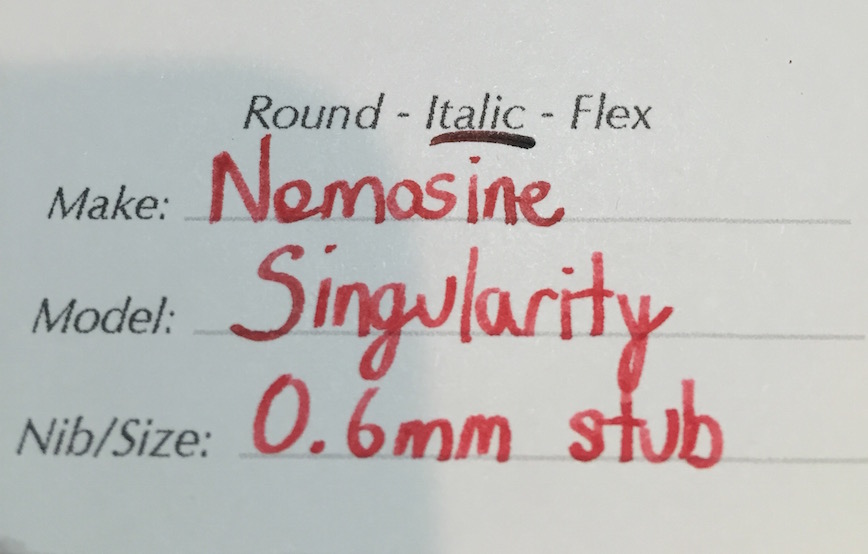 Round - Italic - Flex
Make: Nemosine
Model: Singularity
Nib/Size: 0.6mm stub